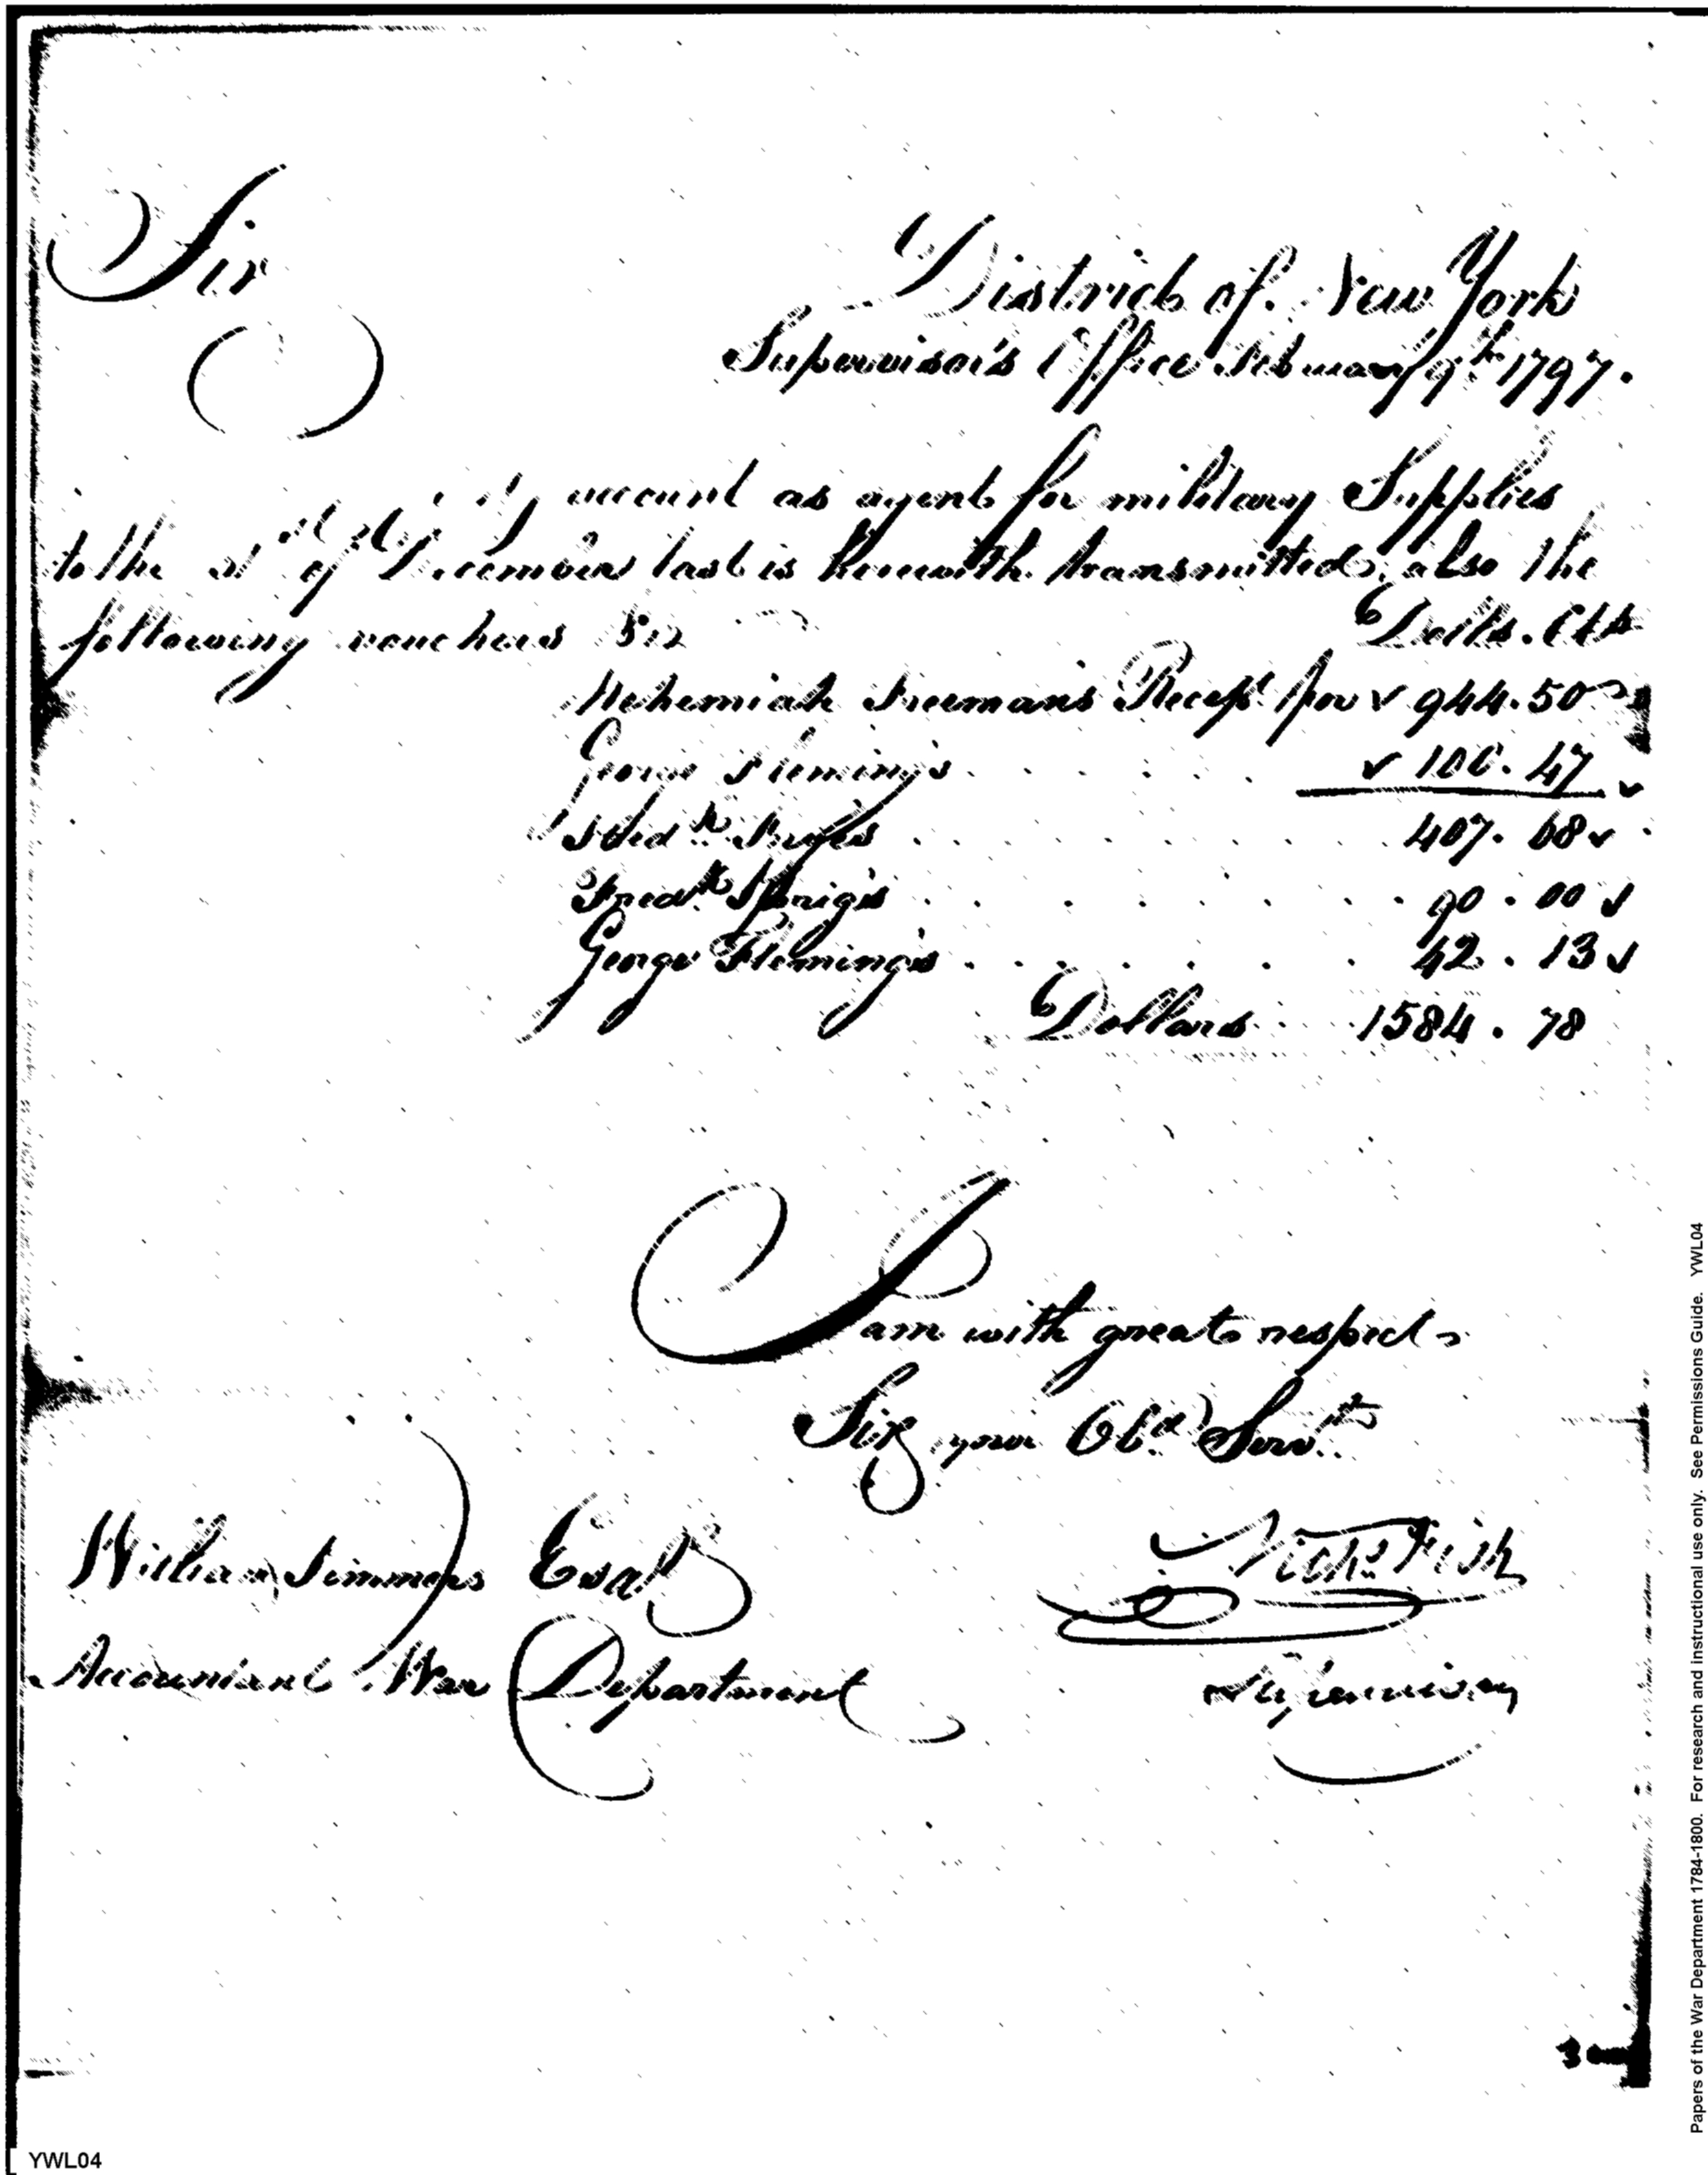 Sir
District of New York
Supervisor's Office February 9th 1797.
My account as agent for military Supplies
to the 31st of December last is herewith transmitted, also the
following vouchers Viz Dolls. Cts
Nehemiah Freemans Recept for 944.50
George Flemings 100.47
Fredk 407.68
Fredk 90.00
George Flemings 42.13
Dollars 1584.78
I am with great respect
Sir your Obd Servt
William Simmons Esqr Nichs Fish
Accountant War Department Supervisor
3
YWL04
Papers of the War Department 1784-1800. For research and instructional use only. See Permissions Guide. YWL04